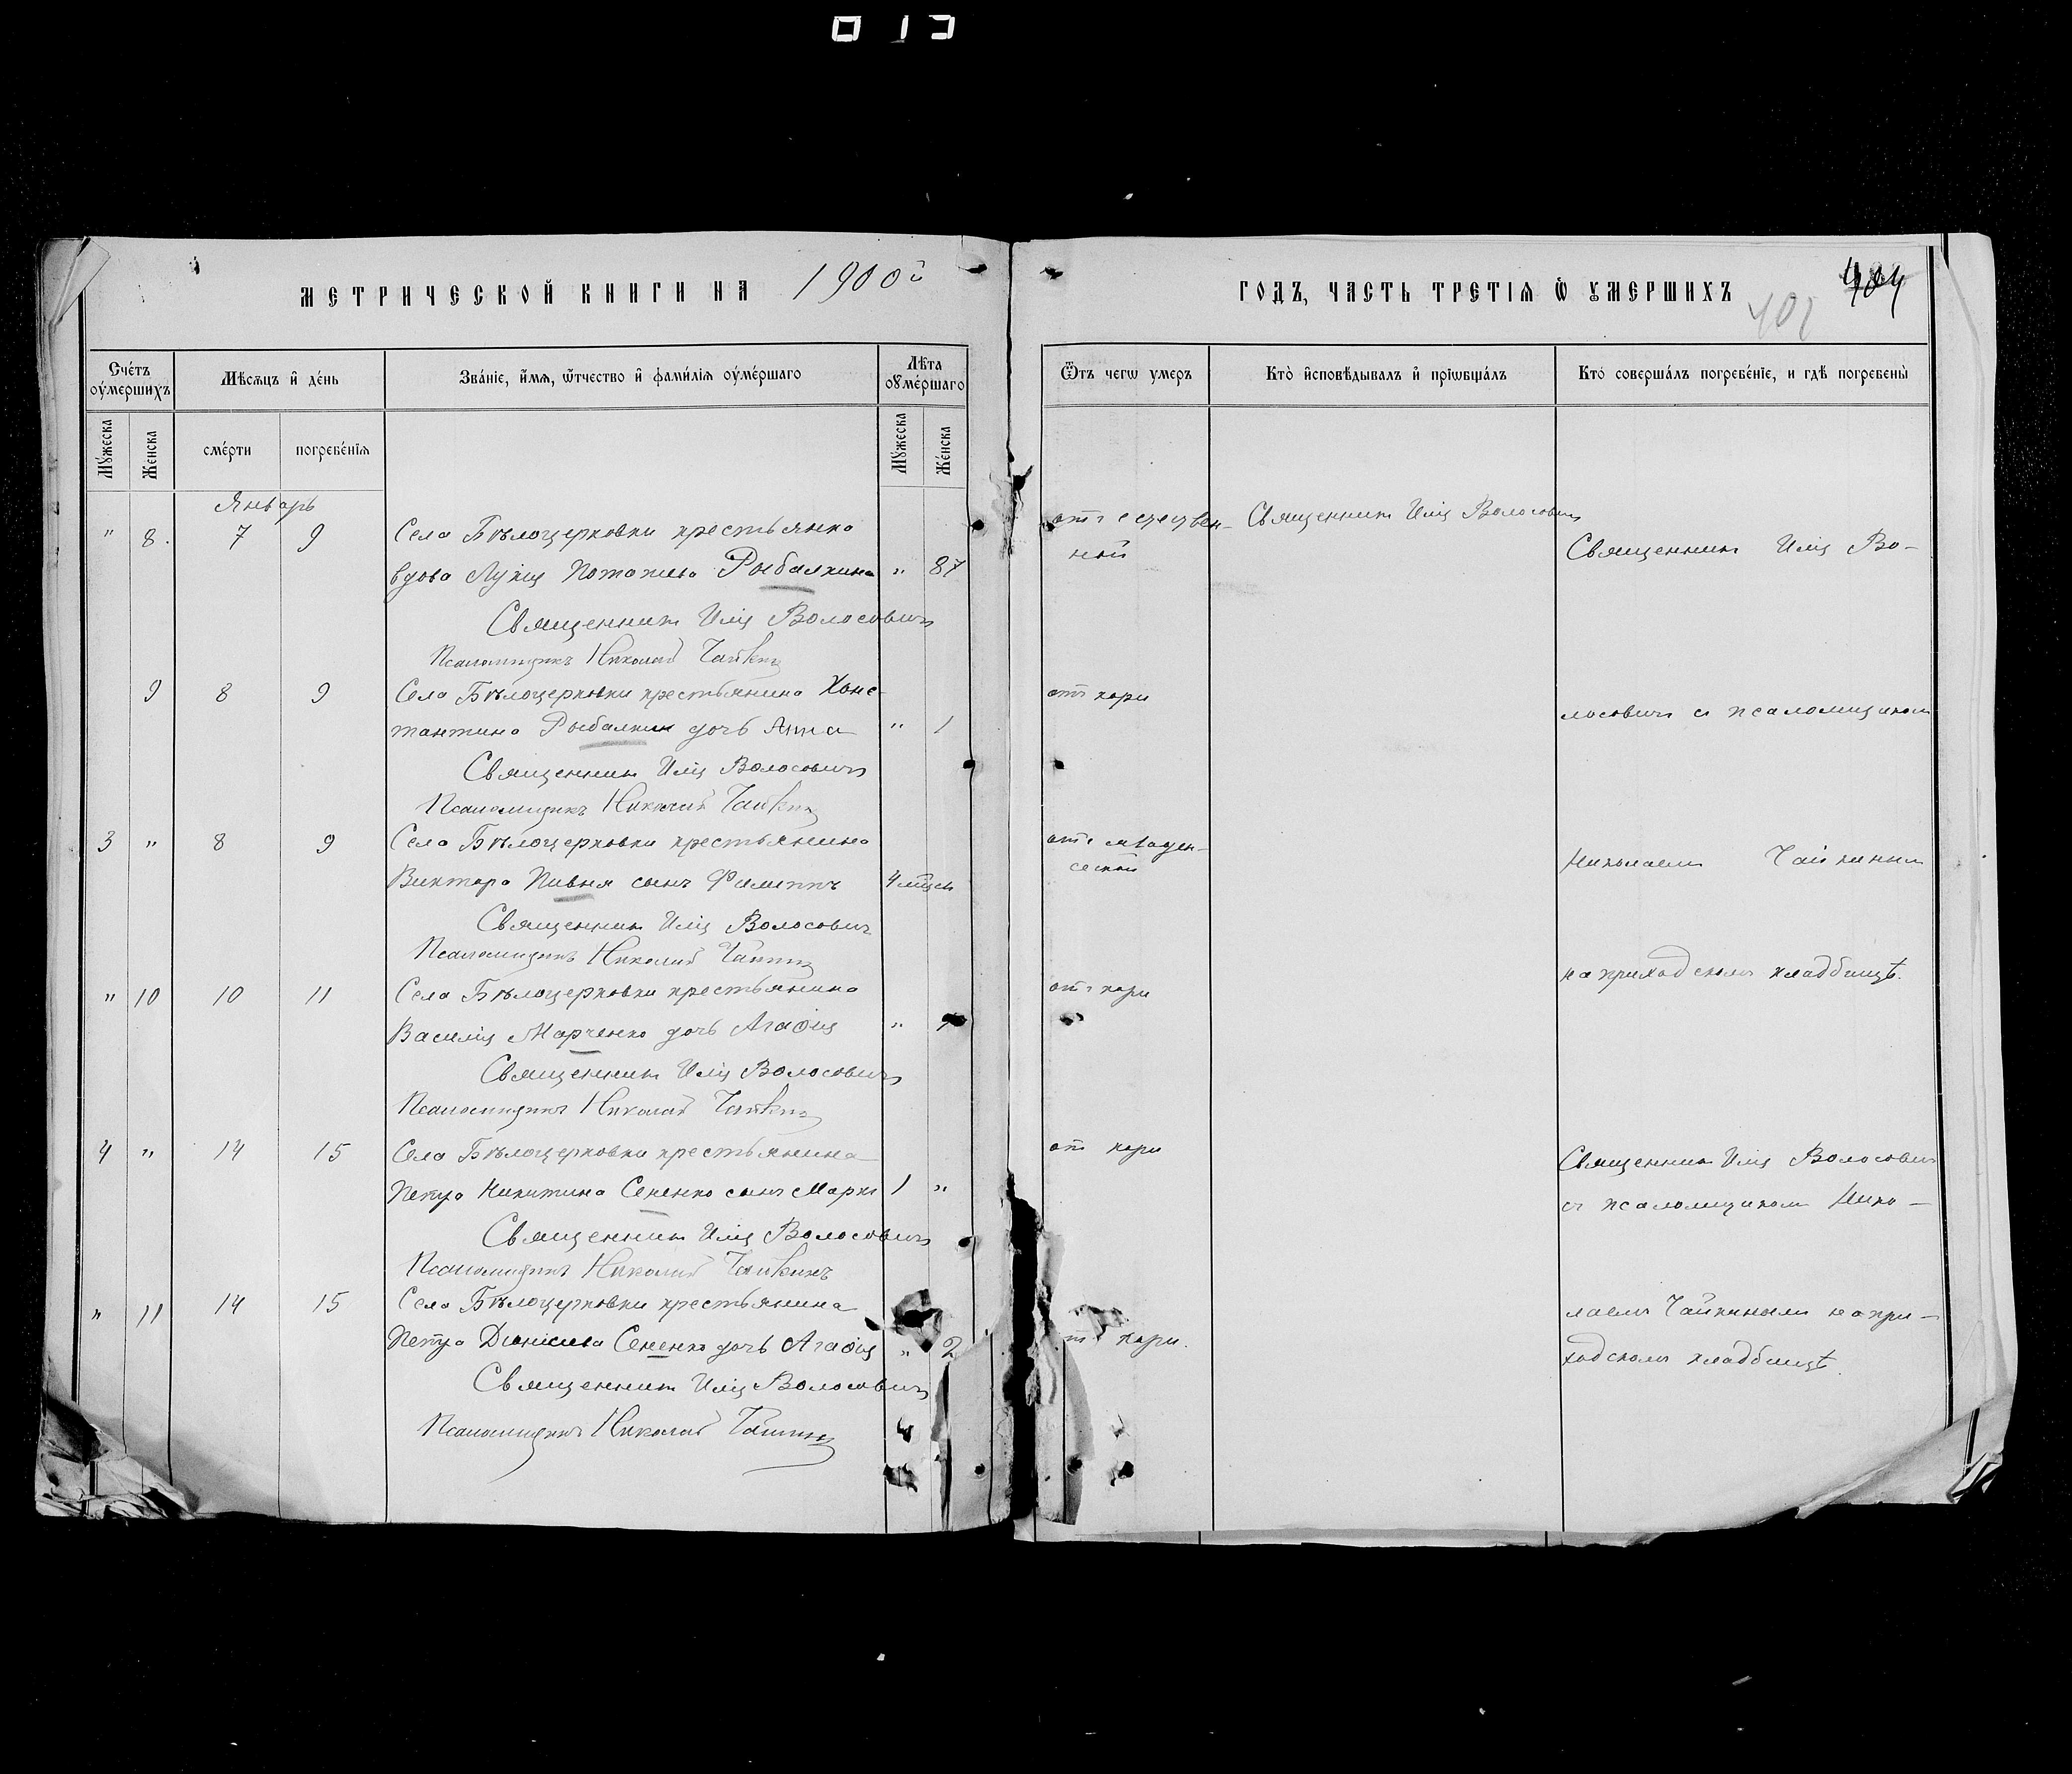 013
МЕТРИЧЕСКОЙ КНИГИ НА 1900й
ГОДЪ, ЧАСТЬ ТРЕТІѦ Ѿ ОУМЕРШИХЪ
404
Счетъ оумершихъ
Мѣсѧцъ и день
Званіе, имѧ, ѿчество и фамилія оумершаго
Лѣта оумершаго
Ѿтъ чегѡ умеръ
Кто исповѣдывалъ и пріѡбщалъ
Кто совершалъ погребеніе, и гдѣ погребены
Мужеска
Женска
смерти
погребенія
Мужеска
Женска
Январь
" 8. 7 9 Села Бѣлоцерковки крестьянка
вдова Лукія Потапіева Рыбалкина " 87
отъ естествен-
ной
Священникъ Илія Волосовичъ
Священникъ Илія Во-
Священникъ Илія Волосовичъ
Псаломщикъ Николай Чайкинъ
9 8 9 Села Бѣлоцерковки крестьянина Конс-
тантина Рыбалкин дочь Анна " 1
отъ кори
лосовичъ съ псаломщикомъ
Священникъ Илія Волосовичъ
Псаломщикъ Николай Чайкинъ
3 " 8 9 Села Бѣлоцерковки крестьянина
Виктора Пивня сынъ Филиппъ 4 мѣсяц
отъ младен-
ческой
Николаемъ Чайкинымъ
Священникъ Илія Волосовичъ
Псаломщикъ Николай Чайкинъ
на приходскомъ кладбищѣ.
" 10 10 11 Села Бѣлоцерковки крестьянина
Василія Марченко дочь Агафія "
отъ кори
Священникъ Илія Волосовичъ
Псаломщикъ Николай Чайкинъ
4 " 14 15 Села Бѣлоцерковки крестьянина
Петра Никитина Сененко сынъ Марко 1 "
отъ кори
Священникъ Илія Волосовичъ
съ псаломщикомъ Нико-
Священникъ Илія Волосовичъ
Псаломщикъ Николай Чайкинъ
" 11 14 15 Села Бѣлоцерковки крестьянина
Петра Діонисіева Сененко дочь Агафія " 2
отъ кори.
лаемъ Чайкинымъ на при-
ходскомъ кладбищѣ.
Священникъ Илія Волосовичъ
Псаломщикъ Николай Чайкинъ